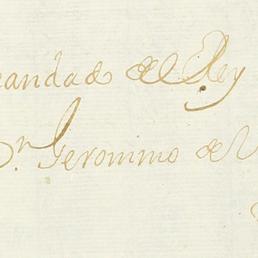 eandad del Rey
Dn Geronimo de